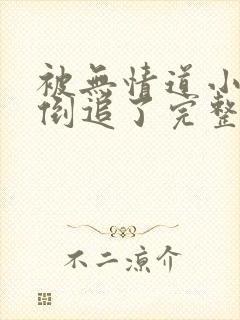 被無情道小
倒追了完整
不二涼介